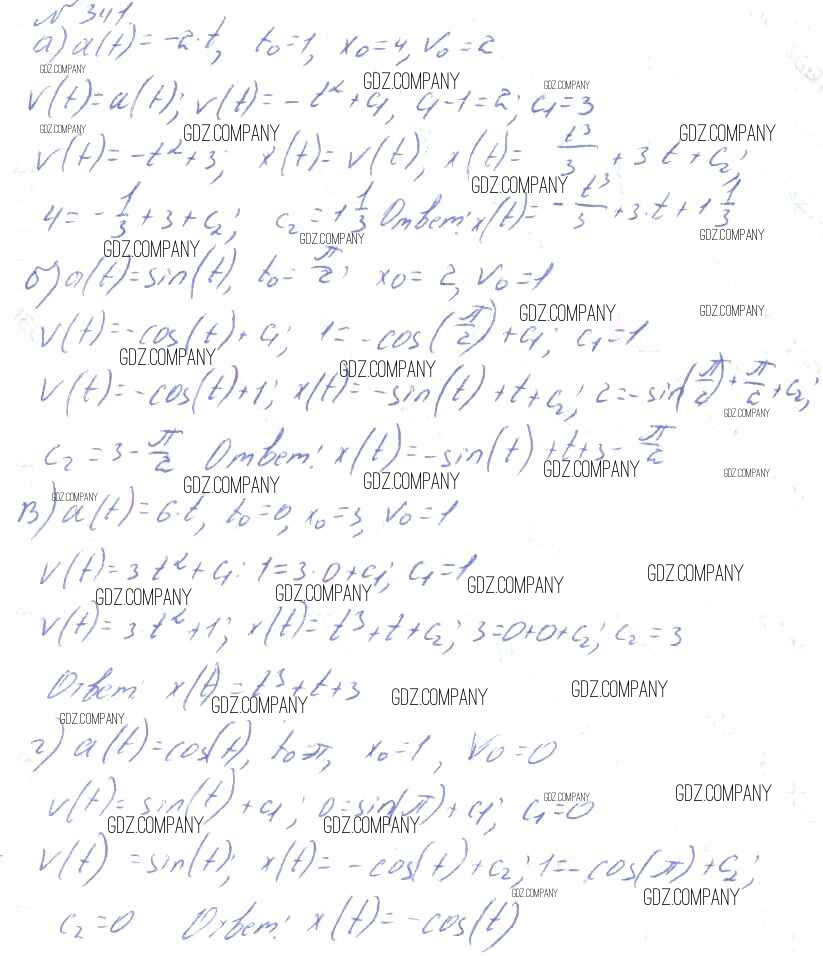 № 341.
а) a(t) = -2·t, t₀=1, x₀=4, v₀=2
GDZ.COMPANY GDZ.COMPANY GDZ.COMPANY
v(t)=a(t); v(t)= -t²+c₁, c₁-1=2; c₁=3
GDZ.COMPANY GDZ.COMPANY GDZ.COMPANY
v(t)= -t²+3; x(t)=v(t), x(t)= t³/3 + 3t + c₂;
GDZ.COMPANY
4= -1/3 + 3 + c₂; c₂=1 1/3 Ответ: x(t)= -t³/3 + 3·t + 1 1/3
GDZ.COMPANY GDZ.COMPANY GDZ.COMPANY
б) a(t)=sin(t), t₀= π/2; x₀=2, v₀=1
GDZ.COMPANY GDZ.COMPANY
v(t)=-cos(t)+c₁; 1=-cos(π/2)+c₁; c₁=1
GDZ.COMPANY GDZ.COMPANY
v(t)=-cos(t)+1; x(t)=-sin(t)+t+c₂; 2=-sin(π/2)+π/2+c₂;
GDZ.COMPANY
c₂=3-π/2 Ответ: x(t)=-sin(t)+t+3-π/2
GDZ.COMPANY GDZ.COMPANY GDZ.COMPANY GDZ.COMPANY
GDZ.COMPANY
в) a(t)=6·t, t₀=0, x₀=3, v₀=1
v(t)=3t²+c₁: 1=3·0+c₁; c₁=1
GDZ.COMPANY GDZ.COMPANY GDZ.COMPANY GDZ.COMPANY
v(t)=3·t²+1; x(t)=t³+t+c₂; 3=0+0+c₂; c₂=3
Ответ: x(t)=t³+t+3
GDZ.COMPANY GDZ.COMPANY GDZ.COMPANY
GDZ.COMPANY
г) a(t)=cos(t), t₀=π, x₀=1, v₀=0
v(t)=sin(t)+c₁; 0=sin(π)+c₁; c₁=0
GDZ.COMPANY GDZ.COMPANY GDZ.COMPANY GDZ.COMPANY
v(t)=sin(t); x(t)=-cos(t)+c₂; 1=-cos(π)+c₂;
GDZ.COMPANY GDZ.COMPANY
c₂=0 Ответ: x(t)=-cos(t)